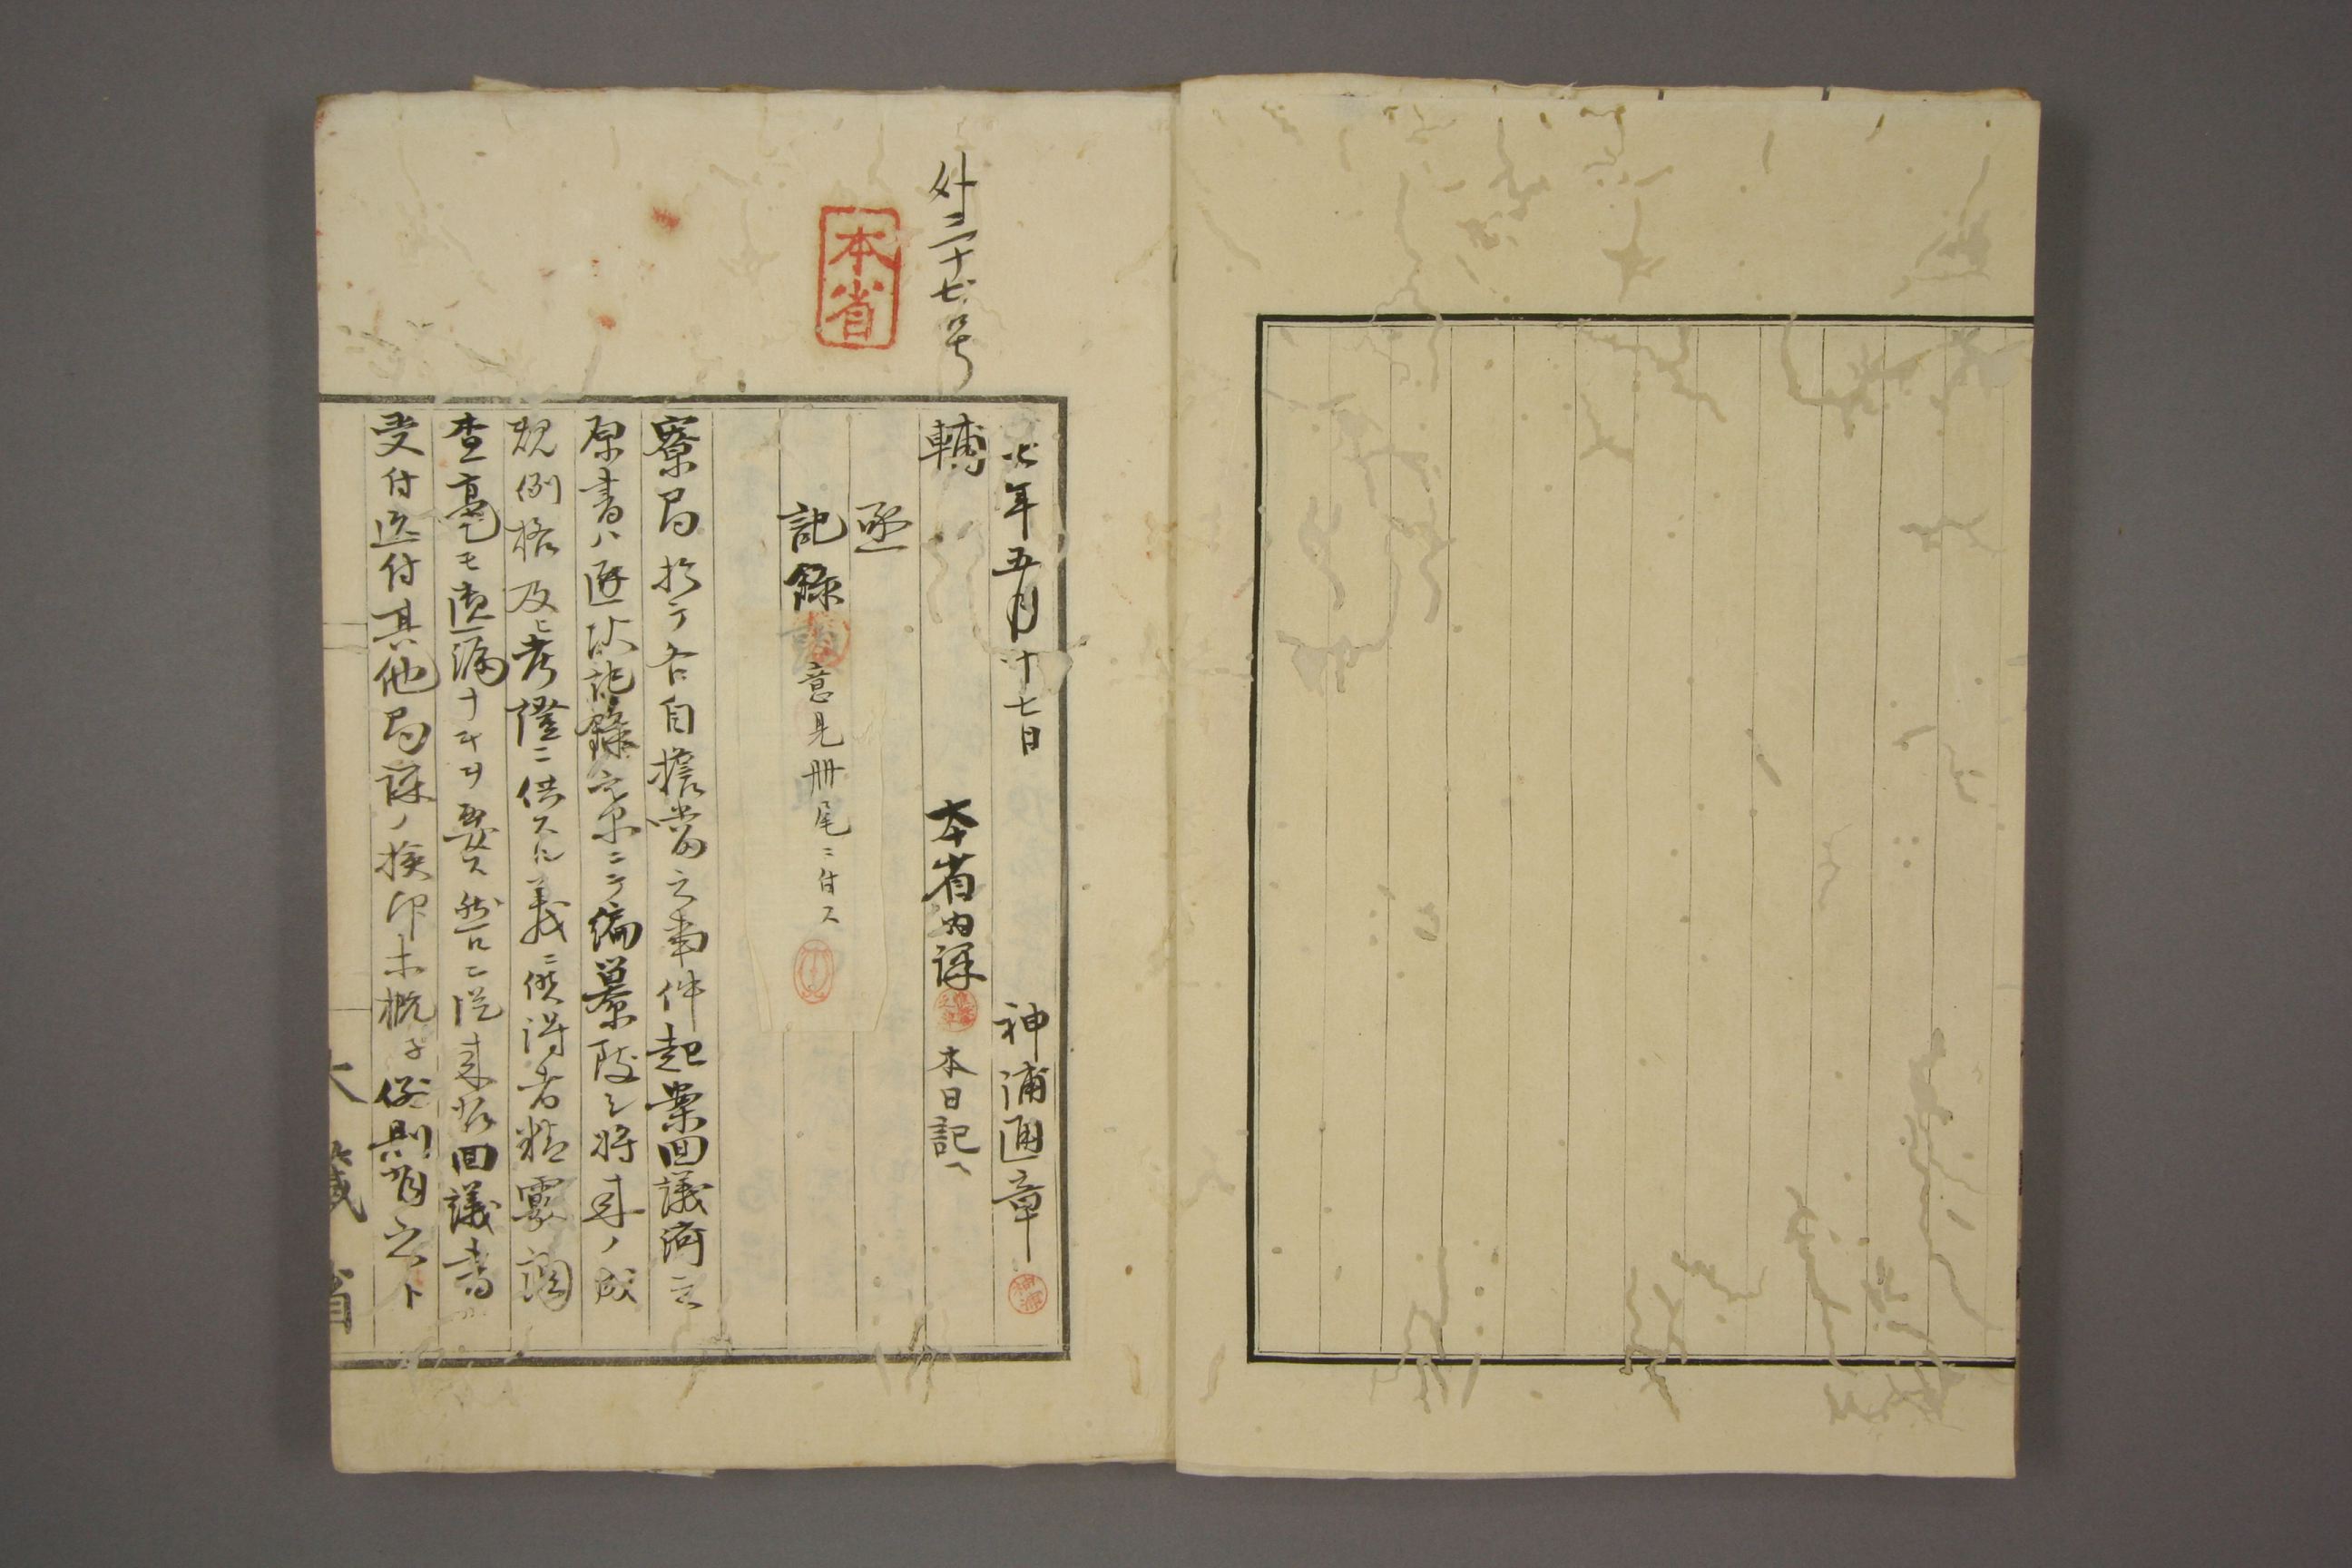 外三十七号
本省
七年五月十七日
神浦通章
輔
本省内課
本日記
丞
記録
意見册尾ニ付ス
寮局於テ各自擔當之事件起案回議済之
原書ハ逐次記録寮ニテ編纂致シ将来ノ成
規例格及ヒ考證ニ供スル義ニ候得者精覈調
査毫モ遺漏ナキヲ要ス然ルニ従来右回議書
受付送付其他局課ノ検印未概子例則有之ト
大藏省